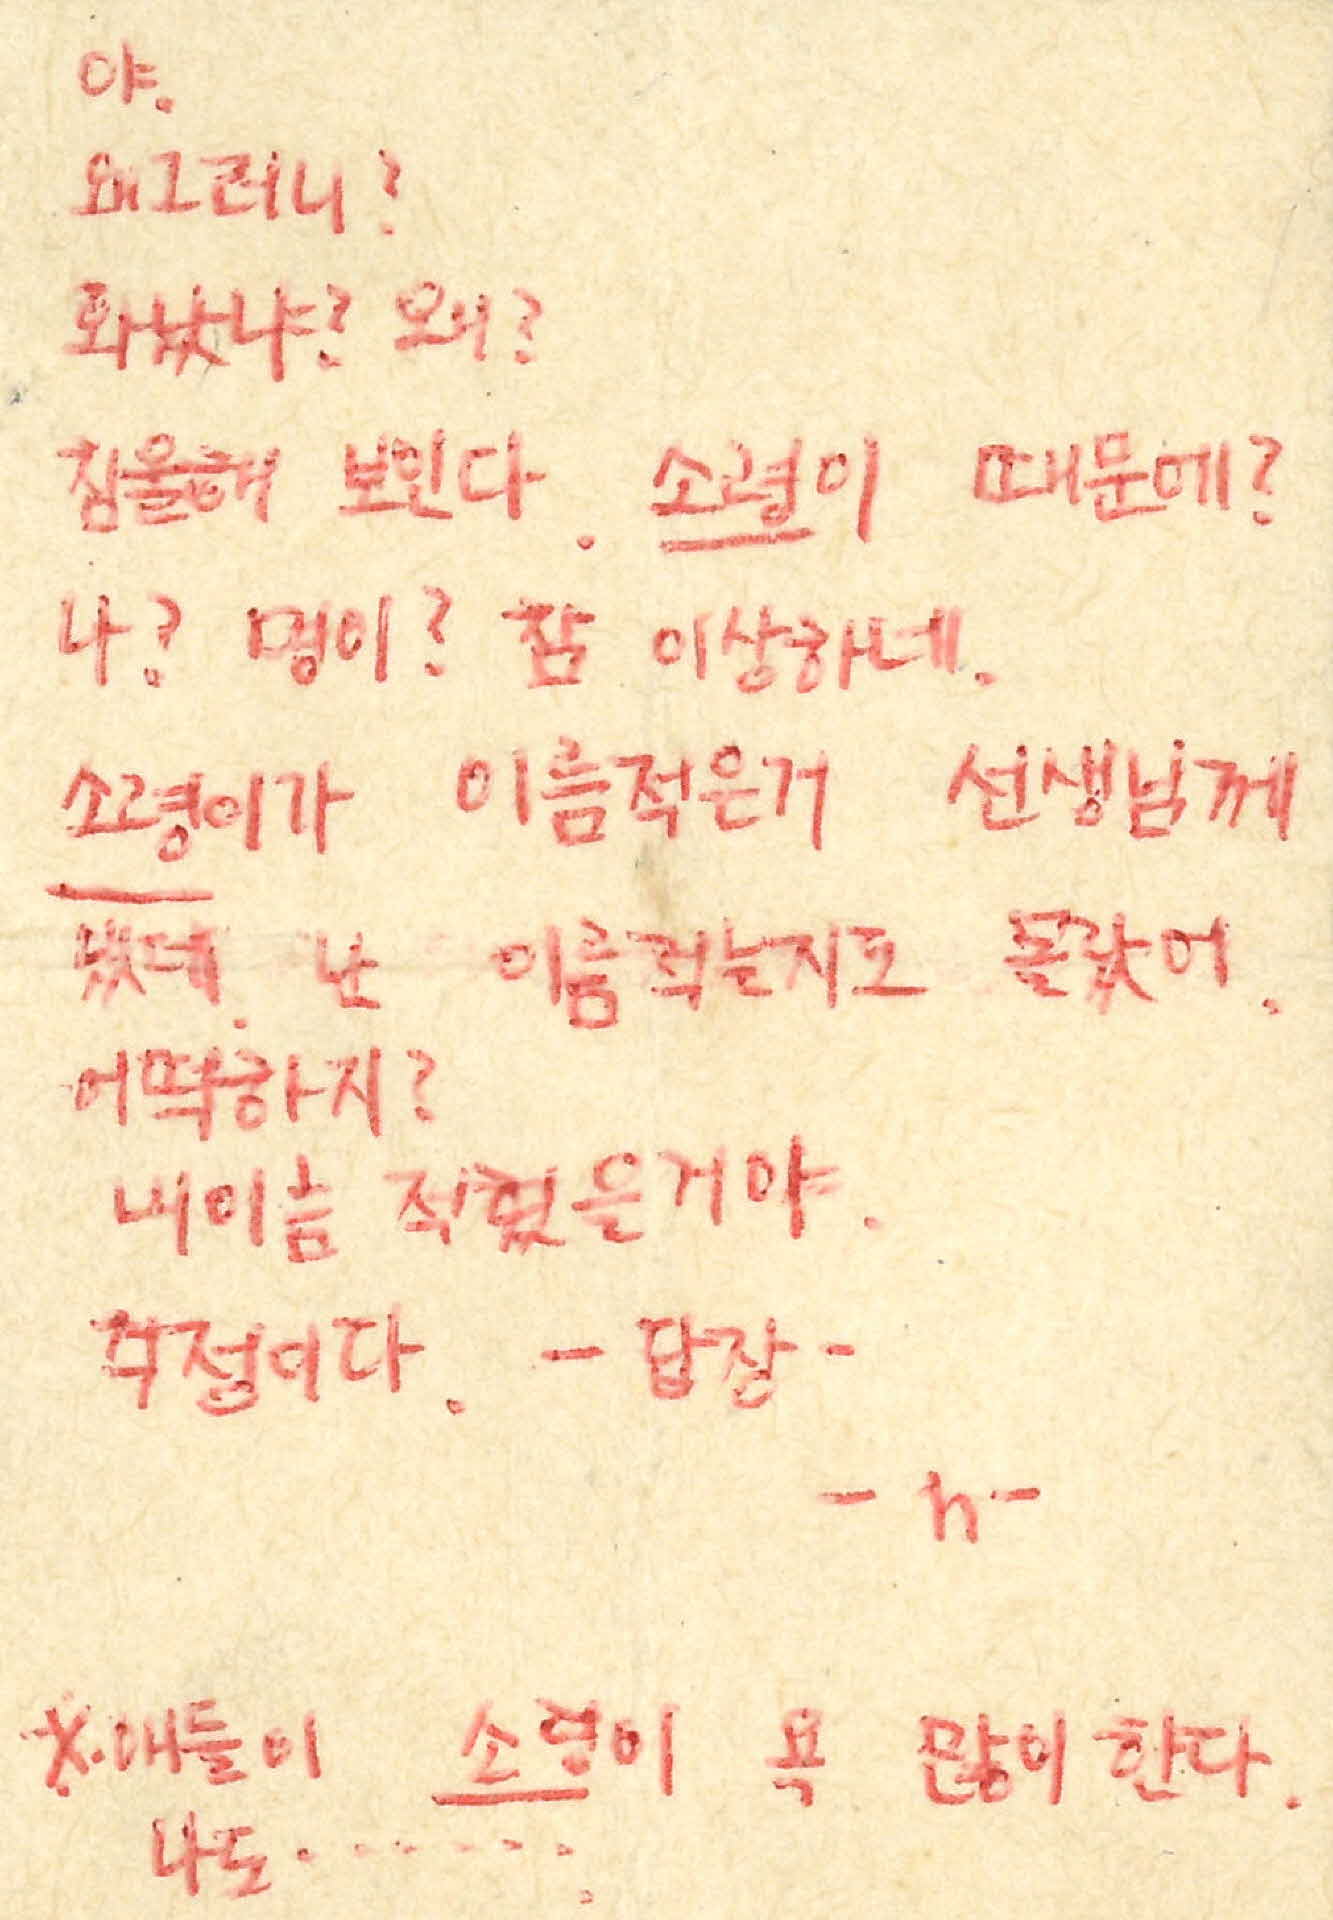 야.
왜그러니?
화났냐? 왜?
침울해 보인다. 소령이 때문에?
나? 멍이? 참 이상하네.
소령이가 이름적은거 선생님께
냈데. 난 이름적는지도 몰랐어.
어떡하지?
내이름 적혔을거야.
걱정이다. - 답장 -
- h -
※.애들이 소령이 욕 많이 한다.
나도........